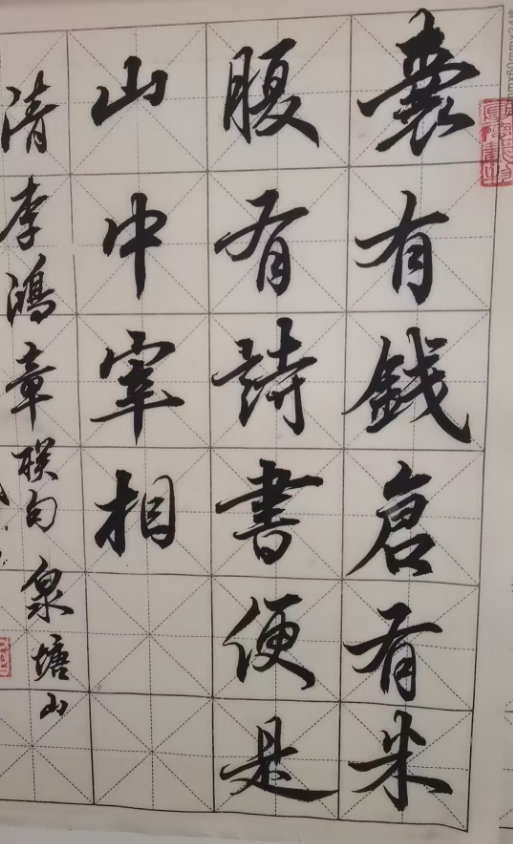 囊有錢倉有米
腹有詩書便是
山中宰相
清李鴻章联句泉塘山